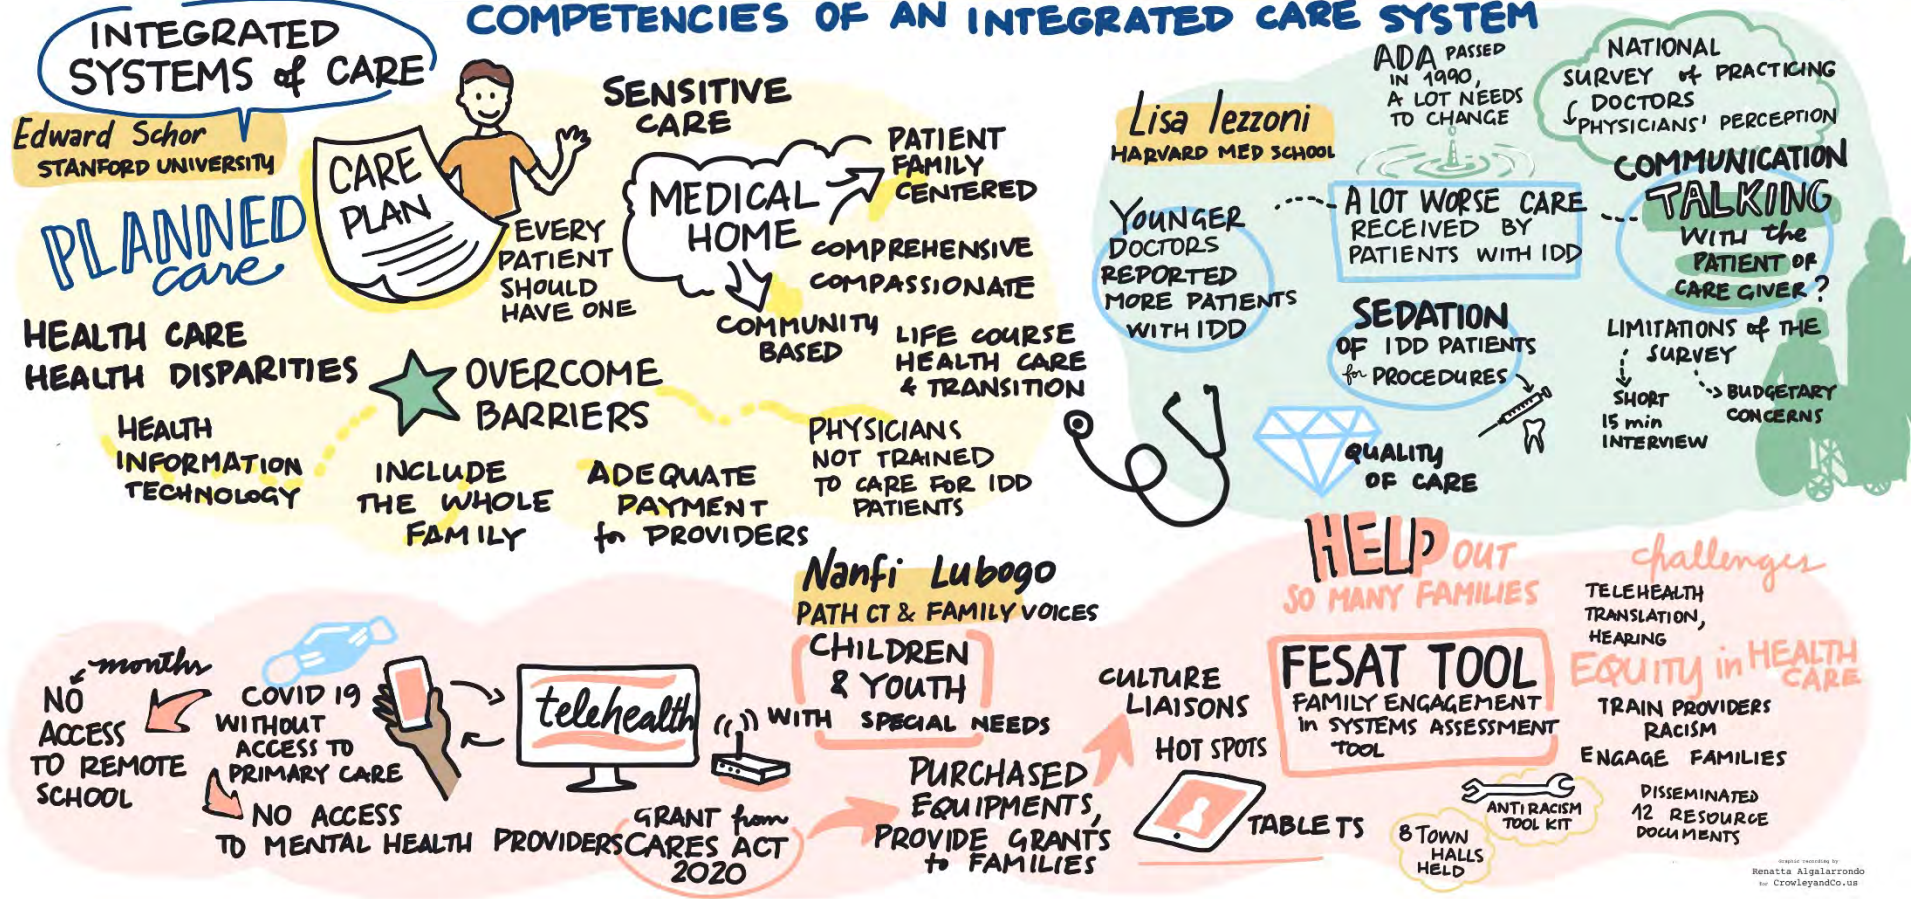 COMPETENCIES OF AN INTEGRATED CARE SYSTEM
INTEGRATED
SYSTEMS of CARE
Edward Schor
STANFORD UNIVERSITY
PLANNED
care
CARE
PLAN
EVERY
PATIENT
SHOULD
HAVE ONE
SENSITIVE
CARE
MEDICAL
HOME
PATIENT
FAMILY
CENTERED
COMPREHENSIVE
COMPASSIONATE
COMMUNITY
BASED
LIFE COURSE
HEALTH CARE
& TRANSITION
HEALTH CARE
HEALTH DISPARITIES
OVERCOME
BARRIERS
HEALTH
INFORMATION
TECHNOLOGY
INCLUDE
THE WHOLE
FAMILY
ADEQUATE
PAYMENT
for PROVIDERS
PHYSICIANS
NOT TRAINED
TO CARE FOR IDD
PATIENTS
Lisa Iezzoni
HARVARD MED SCHOOL
ADA PASSED
IN 1990,
A LOT NEEDS
TO CHANGE
NATIONAL
SURVEY of PRACTICING
DOCTORS
PHYSICIANS' PERCEPTION
YOUNGER
DOCTORS
REPORTED
MORE PATIENTS
WITH IDD
A LOT WORSE CARE
RECEIVED BY
PATIENTS WITH IDD
COMMUNICATION
TALKING
WITH the
PATIENT OR
CARE GIVER?
SEDATION
OF IDD PATIENTS
for PROCEDURES
LIMITATIONS of THE
SURVEY
SHORT
15 min
INTERVIEW
BUDGETARY
CONCERNS
QUALITY
OF CARE
Nanfi Lubogo
PATH CT & FAMILY VOICES
CHILDREN
& YOUTH
WITH SPECIAL NEEDS
months
NO
ACCESS
TO REMOTE
SCHOOL
COVID 19
WITHOUT
ACCESS TO
PRIMARY CARE
NO ACCESS
TO MENTAL HEALTH PROVIDERS
telehealth
GRANT from
CARES ACT
2020
PURCHASED
EQUIPMENTS,
PROVIDE GRANTS
to FAMILIES
CULTURE
LIAISONS
HOT SPOTS
TABLETS
HELP OUT
SO MANY FAMILIES
FESAT TOOL
FAMILY ENGAGEMENT
in SYSTEMS ASSESSMENT
TOOL
challenges
TELEHEALTH
TRANSLATION,
HEARING
EQUITY in HEALTH
CARE
TRAIN PROVIDERS
RACISM
ENGAGE FAMILIES
8 TOWN
HALLS
HELD
ANTI RACISM
TOOL KIT
DISSEMINATED
12 RESOURCE
DOCUMENTS
Graphic recording by
Renatta Algalarrondo
for CrowleyandCo.us